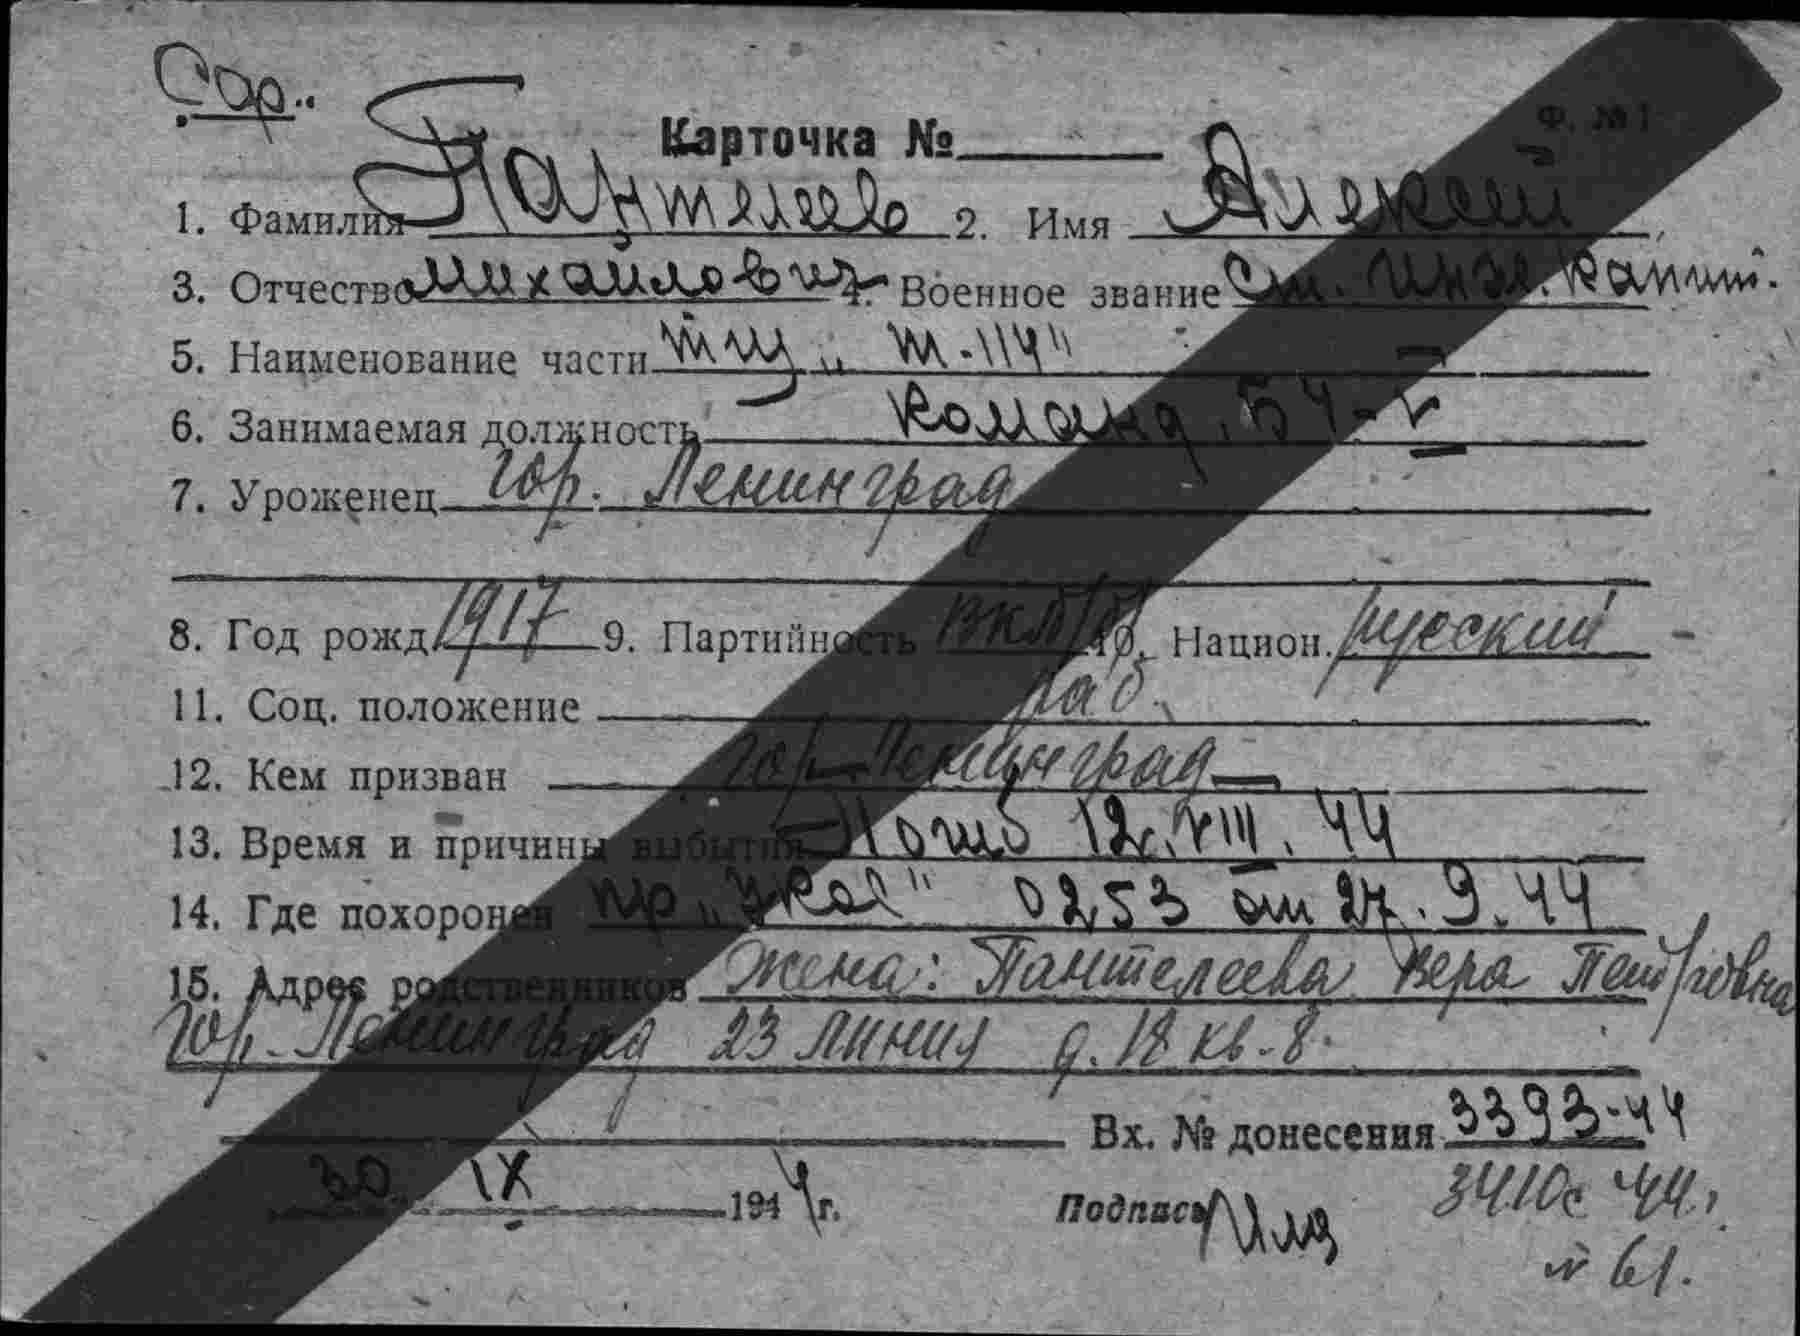 Сор..
Ф. № 1
Карточка №
1. Фамилия Пантелеев 2. Имя Алексей
3. Отчество Михайлович 4. Военное звание Ст. инж. капит.
5. Наименование части тщ „Т-114"
6. Занимаемая должность команд. БЧ-V
7. Уроженец гор. Ленинград
8. Год рожд. 1917 9. Партийность ВКП/б/ 10. Национ. русский
11. Соц. положение раб.
12. Кем призван гор. Ленинград
13. Время и причины выбытия Погиб 12.VIII.44
14. Где похоронен пр. 0253 от 27.9.44
15. Адрес родственников Жена: Пантелеева Вера Петровна
гор. Ленинград 23 линия д. 18 кв. 8
Вх. № донесения 3393-44
30. IX 1944 г. Подпись 3410с 44 г.
№ 61.